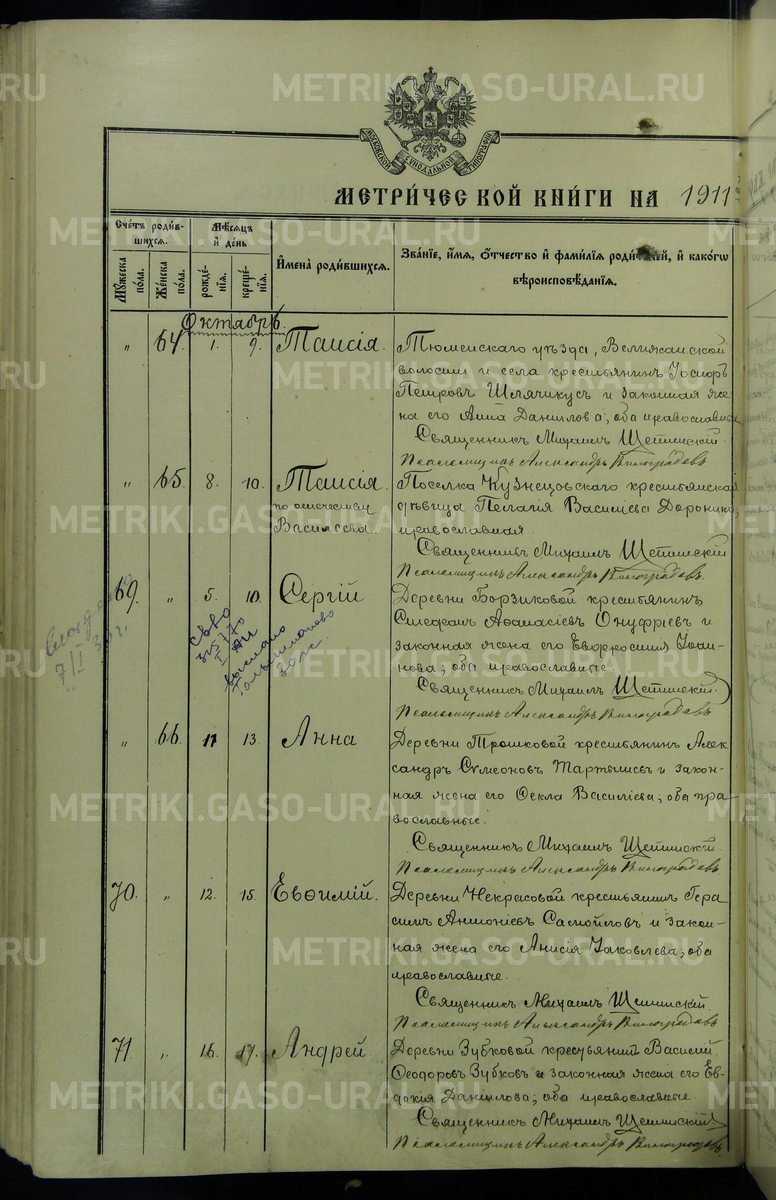 METRIKI.GASO-URAL.RU
МОСКОВСКОЙ СѴНОДАЛЬНОЙ ТИПОГРАФІИ
МЕТРИЧЕСКОЙ КНИГИ НА 1911
Счетъ родив-
шихся.
Мужеска
пола.
Женска
пола.
Мѣсяцъ
и день
рожде-
нія.
креще-
нія.
Имена родившихся.
Званіе, имя, отчество и фамилія родителей, и какогѡ
вѣроисповѣданія.
Октябрь
" 64. 1. 9. Таисія.
Тюменскаго уѣзда, Велижанской
волости и села крестьянинъ Іосифъ
Петровъ и законная же
на его Анна Данилова; оба православные
Священникъ Михаилъ
Псаломщикъ Александръ Виноградовъ
" 65. 8. 10. Таисія.
по отечеству
Васильева.
Поселка Кузнецовскаго крестьянская
дѣвица Пелагія Васильева Доронина,
православная.
Священникъ Михаилъ
Псаломщикъ Александръ Виноградовъ.
69. " 5. 10. Сергій.
Деревни Борзиковой крестьянинъ
Стефанъ Аѳанасіевъ Онуфріевъ и
законная жена его Евфросинія Іоан-
нова; оба православные
Священникъ Михаилъ
Псаломщикъ Александръ Виноградовъ
" 66. 11 13. Анна
Деревни Трошковой крестьянинъ Алек
сандръ Симеоновъ Мартышевъ и закон-
ная жена его Ѳекла Василіева; оба пра-
вославные.
Священникъ Михаилъ
Псаломщикъ Александръ Виноградовъ
70. " 12. 15. Евѳимій.
Деревни Некрасовой крестьянинъ Гера
симъ Антоніевъ и закон-
ная жена его Анисія Іаковлева; оба
православные.
Священникъ Михаилъ
Псаломщикъ Александръ Виноградовъ
71. " 16. 17. Андрей
Деревни Зубковой крестьянинъ Василій
Ѳеодоровъ Зубковъ и законная жена его Ев-
докія Данилова; оба православные
Священникъ Михаилъ
Псаломщикъ Александръ Виноградовъ